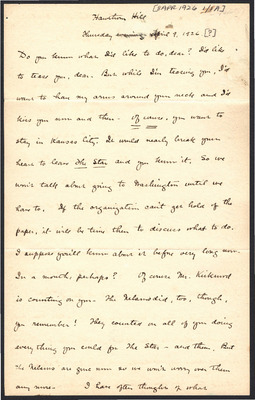 [8 APR 1926 1/EA]
Hawthorn Hill
Thursday evening April 9, 1926 [?]
Do you know what I'd like to do, dear? I'd like
to tease you, dear. But while I'm teasing you, I'd
want to have my arms around your neck and I'd
kiss you now and then. Of course, you want to
stay in Kansas City. It would nearly break your
heart to leave The Star and you know it. So we
won't talk about going to Washington until we
have to. If the organization can't get hold of the
paper, it will be time then to discuss what to do.
I suppose you'll know about it before very long now.
In a month, perhaps? Of course Mr. Kirkwood
is counting on you. The Nelsons did, too, though,
you remember! They counted on all of you doing
everything you could for The Star - and them. But
the Nelsons are gone now so we won't worry over them
any more. I have often thought of what